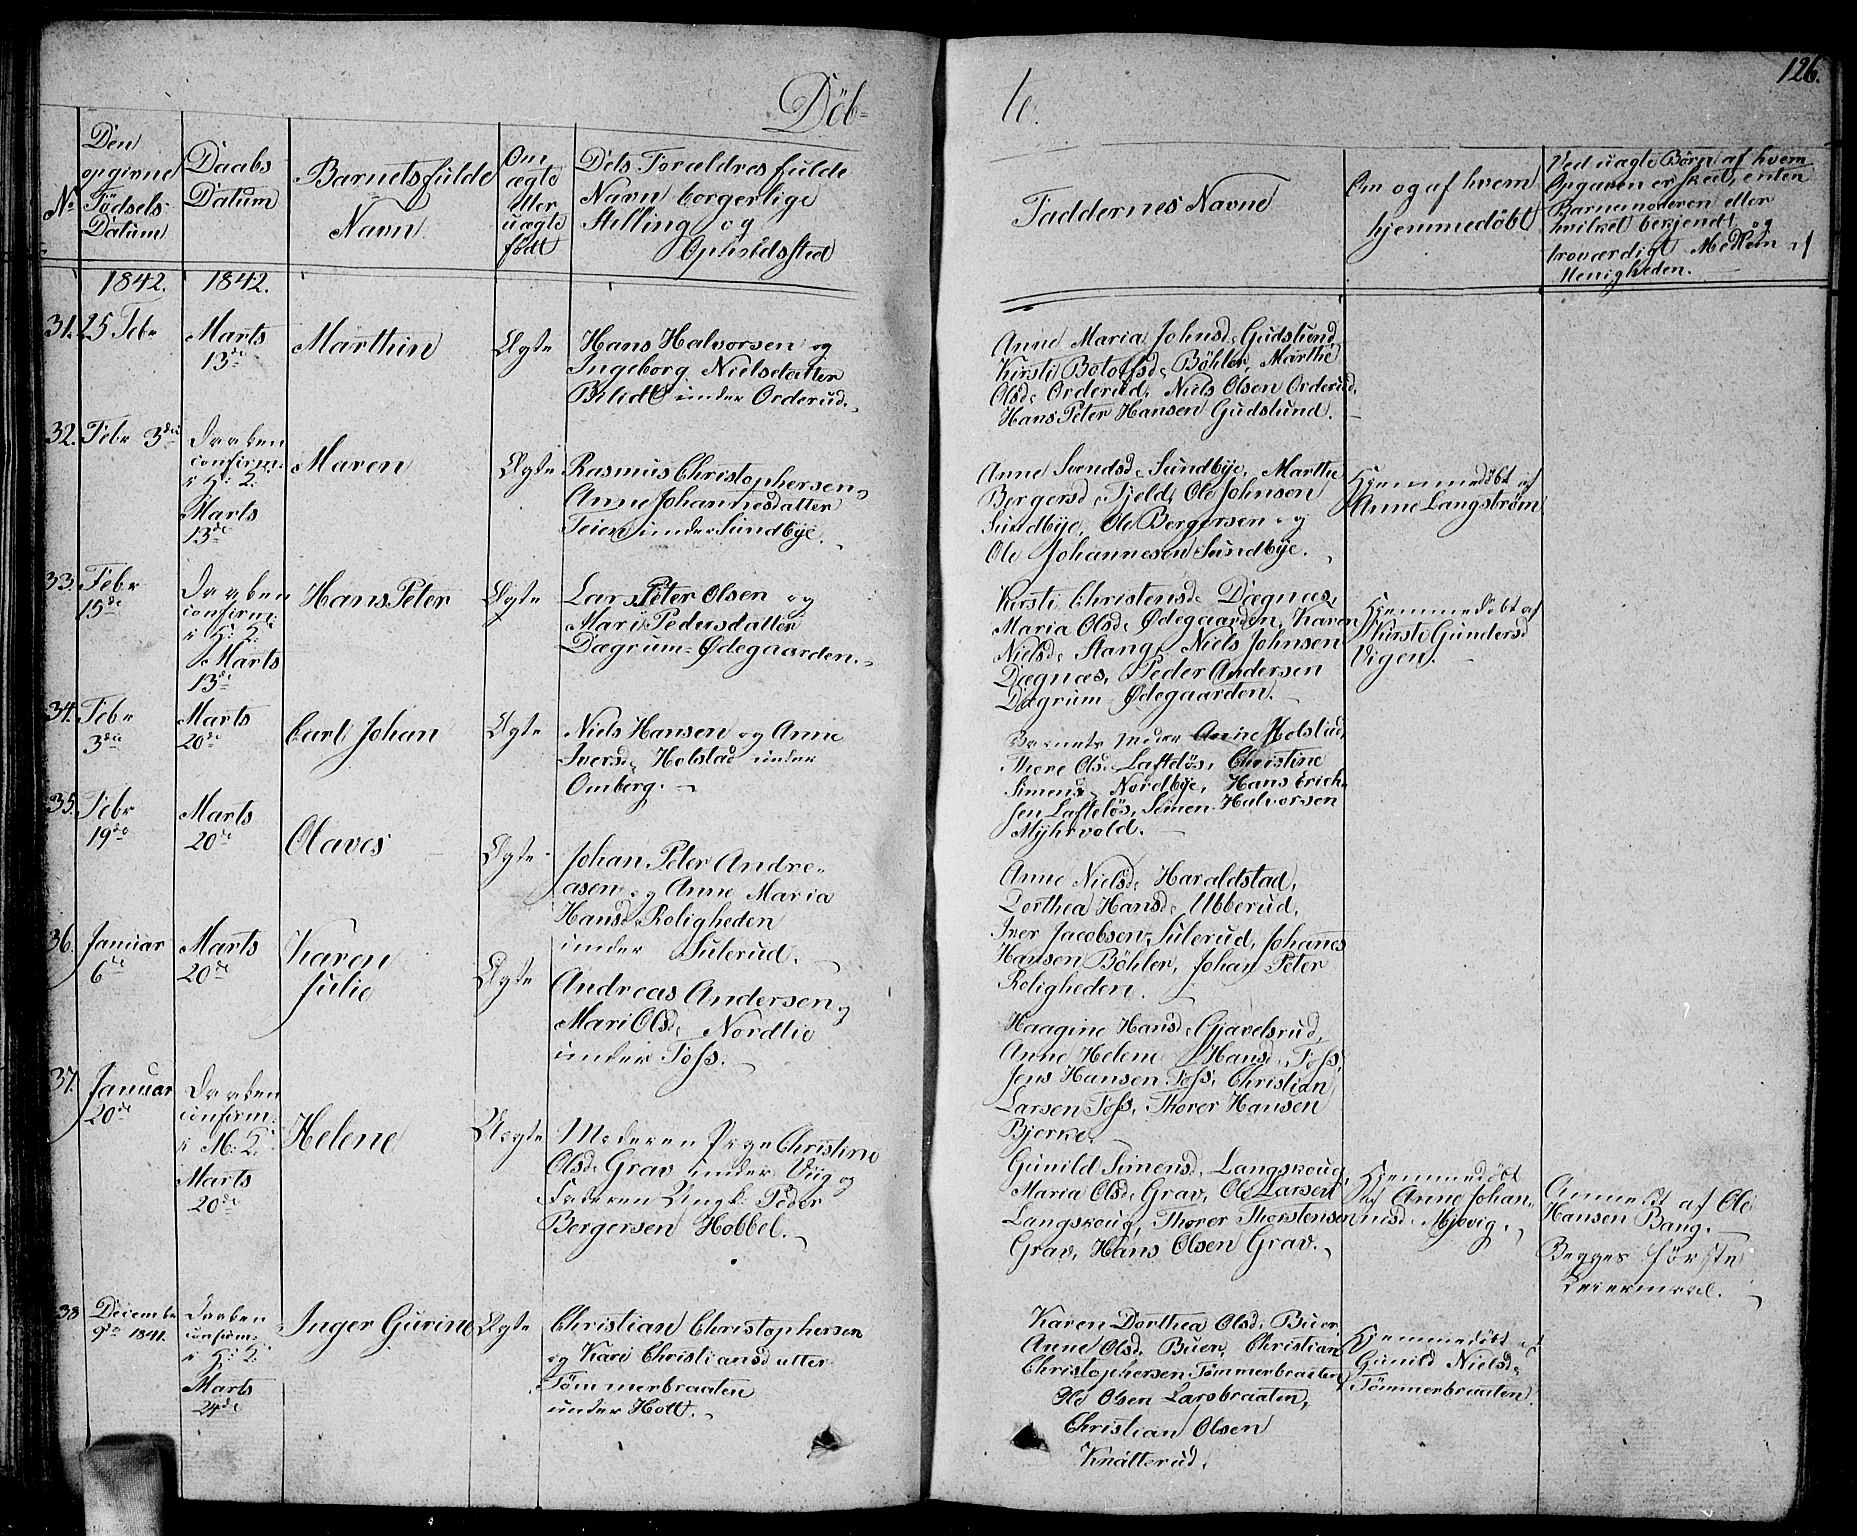 Döb-
te.
126.
No
Den
opgivne
Födsels-
Datum
Daabs
Datum
Barnets fulde
Navn
Om
ægte
eller
uægte
födt
Dets Forældres fulde
Navn borgerlige
Stilling og
Opholdssted
Faddernes Navne
Om og af hvem
hjemmedöbt
Ved uægte Börn af hvem
Opgaven er skeet, enten
Barnemoderen eller
hvilket bekjendt og
troværdigt Medlem af
Menigheden.
1842.
1842.
31.
25 Febr
Marts
13de
Marthin
Ægte
Hans Halvorsen og
Ingeborg Nielsdatter
Blidt under Orderud.
Anne Maria Johnsd. Gudslund,
Kirsti Botolfsd. Böhler, Marthe
Olsd. Orderud, Niels Olsen Orderud,
Hans Peter Hansen Gudslund.
32.
Febr 3die
Daaben
confirm.
i K: 2.
Marts
13de
Maren
Ægte
Rasmus Christophersen
Anne Johannesdatter
Teien under Sundbye.
Anne Svendsd. Sundbye, Marthe
Bergersd. Fjeld, Ole Johnsen
Sundbye, Ole Bergersen og
Ole Johannesen Sundbye.
Hjemmedöbt af
Anne Langström
33.
Febr
15de
Daaben
confirm.
i K: 2.
Marts
13de
Hans Peter
Ægte
Lars Peter Olsen og
Mari Pedersdatter
Dægrum-Ödegaarden.
Kirsti Christensd. Dægnæs,
Maria Olsd. Ödegaarden, Karen
Nielsd. Stang, Niels Johnsen
Dægnæs, Peder Andersen
Dægrum-Ödegaarden.
Hjemmedöbt af
Kirsti Gundersd
Vigen.
34.
Febr
3die
Marts
20de
Carl Johan
Ægte
Niels Hansen og Anne
Iversd. Holstad under
Omberg.
Barnets Moder Anne Holstad,
Thore Olsd. Lafteløs, Christine
Simensd. Nordbye, Hans Erich-
sen Lafteløs, Simen Halvorsen
Myhrvold.
35.
Febr
19de
Marts
20de
Olaves
Ægte
Johan Peter Andre-
asen og Anne Maria
Hansd. Roligheden
under Sulerud.
Anne Nielsd. Haraldstad,
Dorthea Hansd. Ubberud,
Iver Jacobsen Sulerud, Johannes
Hansen Böhler, Johan Peter
Roligheden.
36.
Januar
6de
Marts
20de
Karen
Julie
Ægte
Andreas Andersen og
Mari Olsd. Nordlie
under Foss.
Haagine Hansd. Gjavelsrud,
Anne Helene Hansd. Foss,
Jens Hansen Foss, Christian
Larsen Foss, Thorer Hansen
Bjerke.
37.
Januar
20de
Daaben
confirm.
i M: 2.
Marts
20de
Helene
Uægte
Moderen Pige Christine
Olsd. Grav under Viig og
Faderen Ungk: Peder
Bergersen Hobbel.
Gunild Simensd. Langskoug,
Maria Olsd. Grav, Ole Larsen
Langskoug, Thorer Thorstensen
Grav, Hans Olsen Grav.
Hjemmedöbt
af Anne Johan-
nesd. Mjovig.
Anmeldt af Ole
Hansen Bang.
Begges förste
Leiermaal.
38
Decembr
9de 1841.
Daaben
confirm.
i K: 2.
Marts
24de
Inger Gurine
Ægte
Christian Christophersen
og Kari Christiansdatter
Tömmerbraaten
under Hott.
Karen Dorthea Olsd. Buer,
Anne Olsd. Buer, Christian
Christophersen Tömmerbraaten
Ole Olsen Larsbraaten,
Christian Olsen
Knatterud.
Hjemmedöbt af
Gunild Nielsd.
Tömmerbraaten.